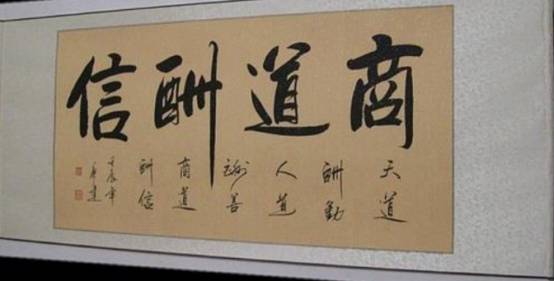 商道酬信
天道
酬勤
人道
酬善
商道
酬信
壬辰年